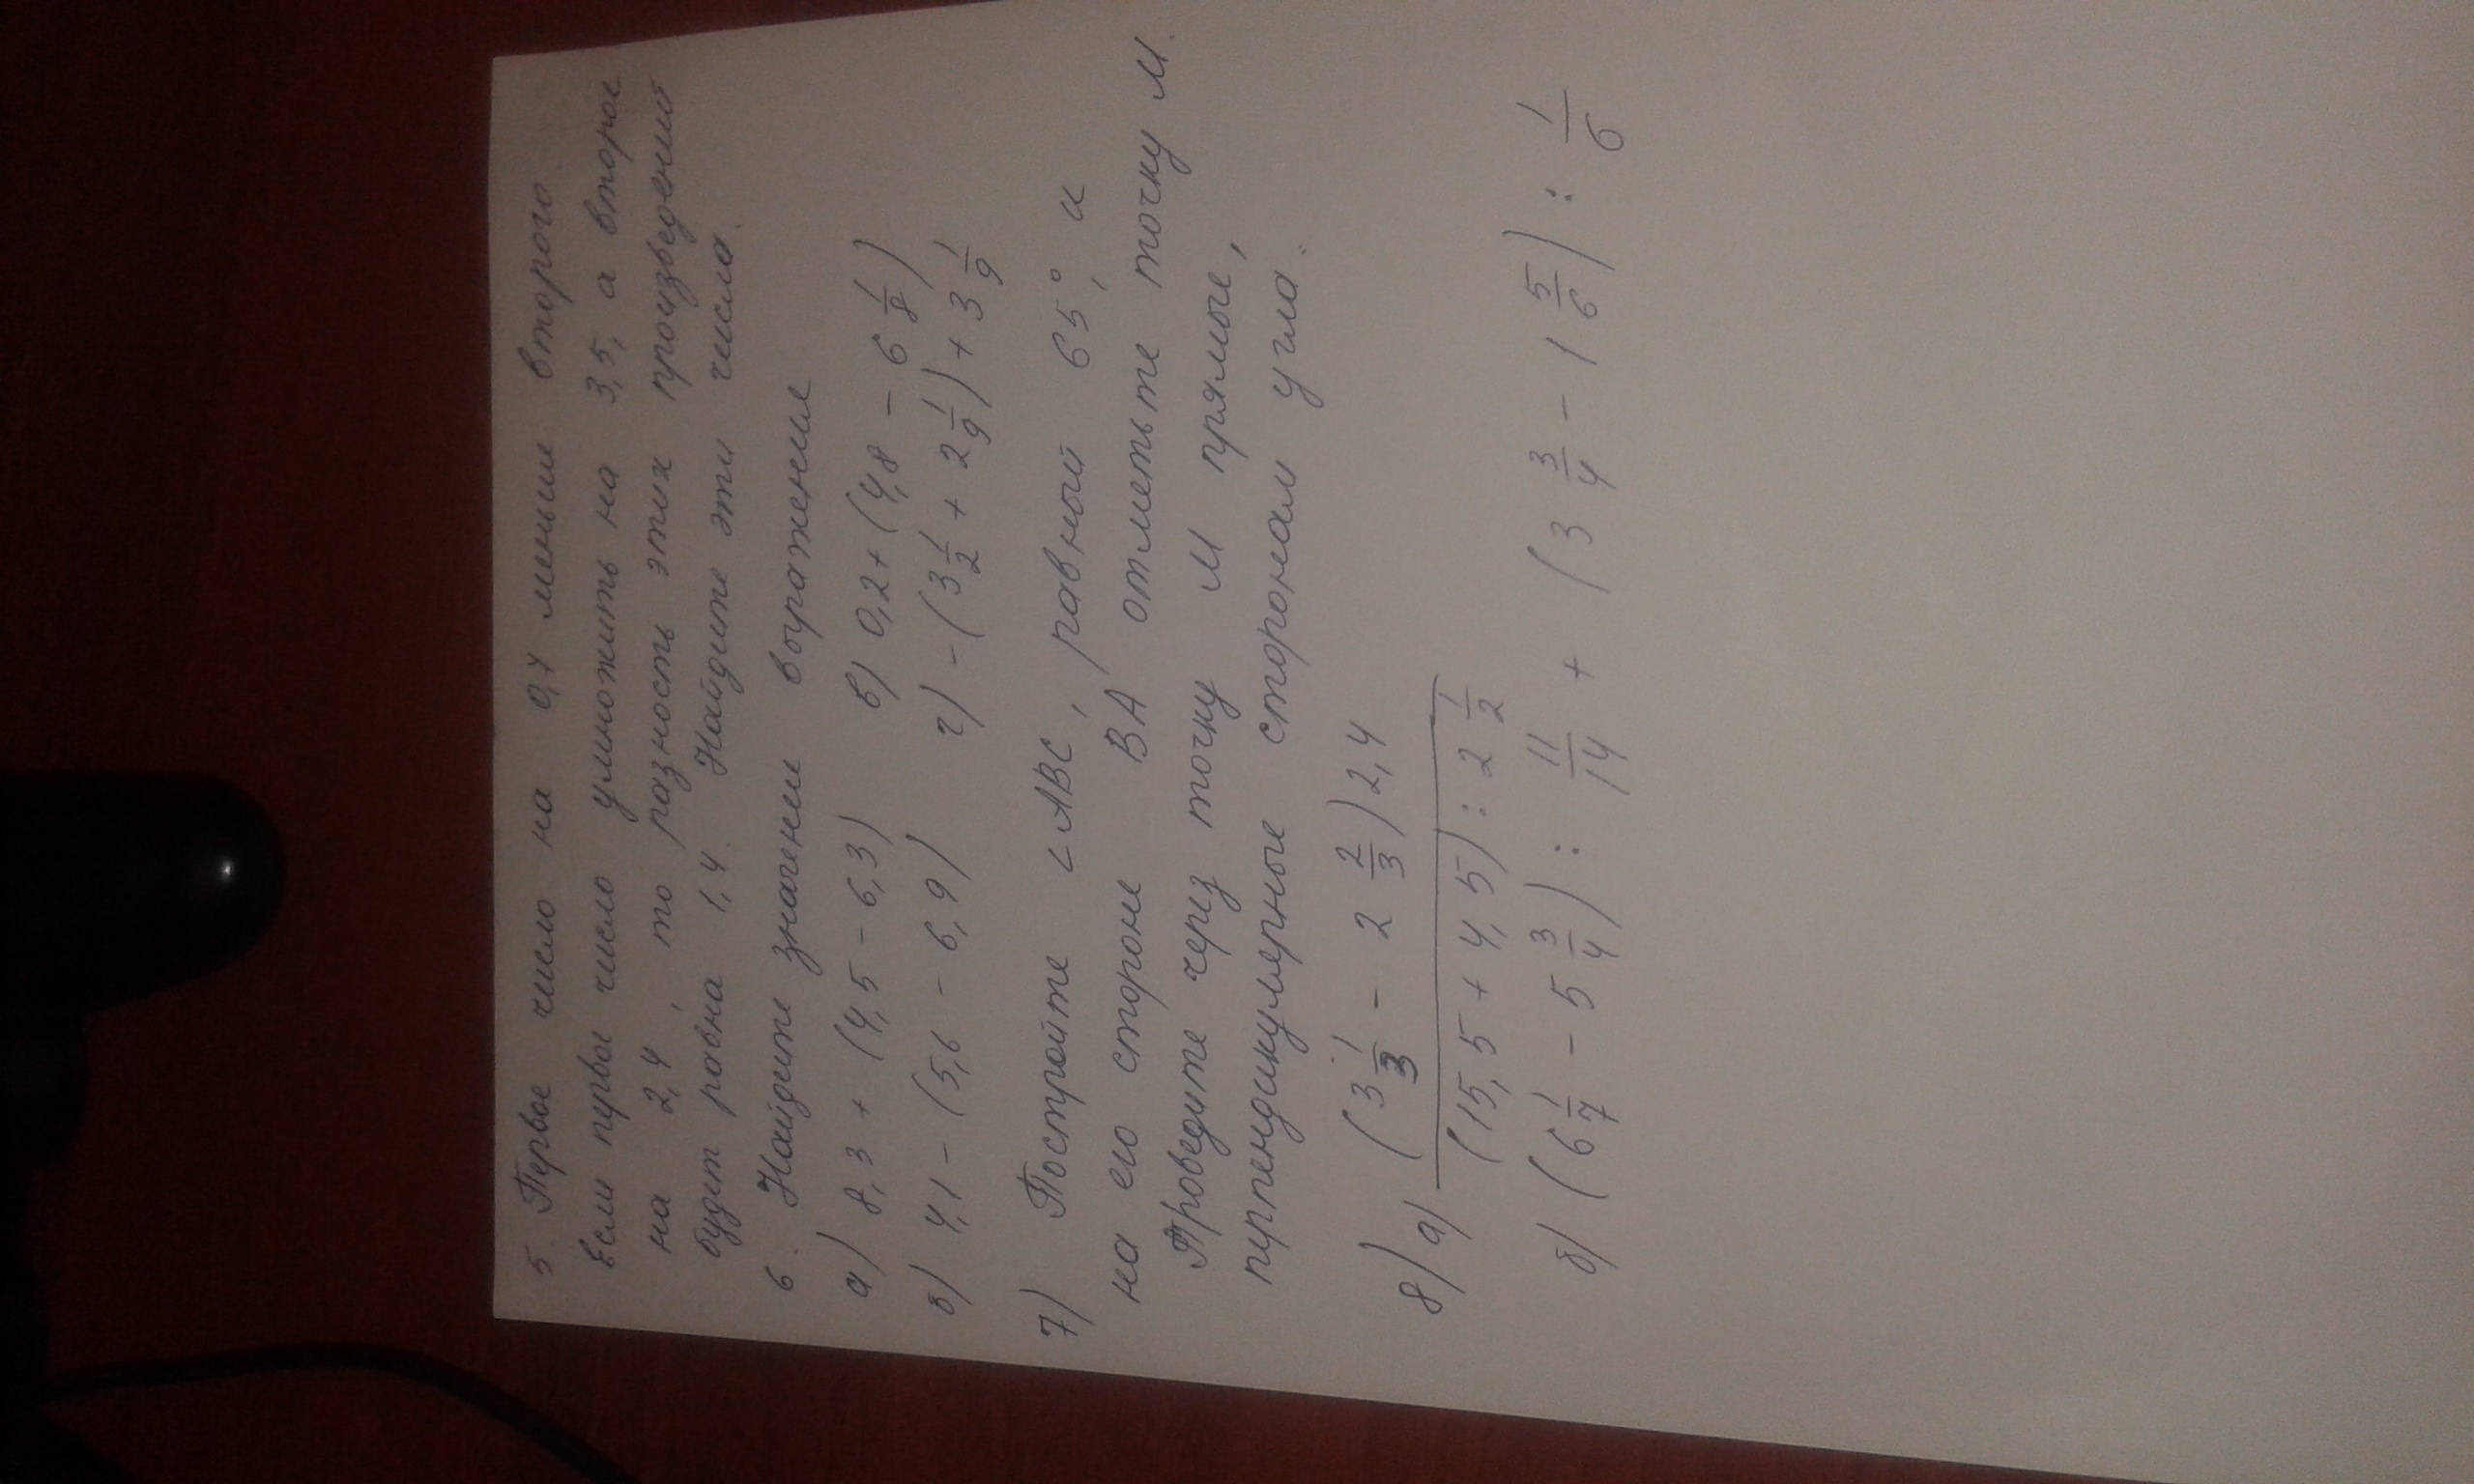 5. Первое число на 0,7 меньше второго.
Если первое число умножить на 3,5, а второе
на 2,4, то разность этих произведений
будет равна 1,4. Найдите эти числа.
6. Найдите значение выражение
а) 8,3 + (4,5 - 6,3) в) 0,2 + (4,8 - 6 1/8)
б) 4,1 - (5,6 - 6,9) г) - (3 1/2 + 2 1/9) + 3 1/9
7) Постройте ∠ABC, равный 65°, и
на его стороне BA отметьте точку M.
Проведите через точку M прямые,
перпендикулярные сторонам угла.
8) а) (3 1/3 - 2 2/3) 2,4
(15,5 + 4,5) : 2 1/2
б) (6 1/7 - 5 3/4) : 11/14 + (3 3/4 - 1 5/6) : 1/6